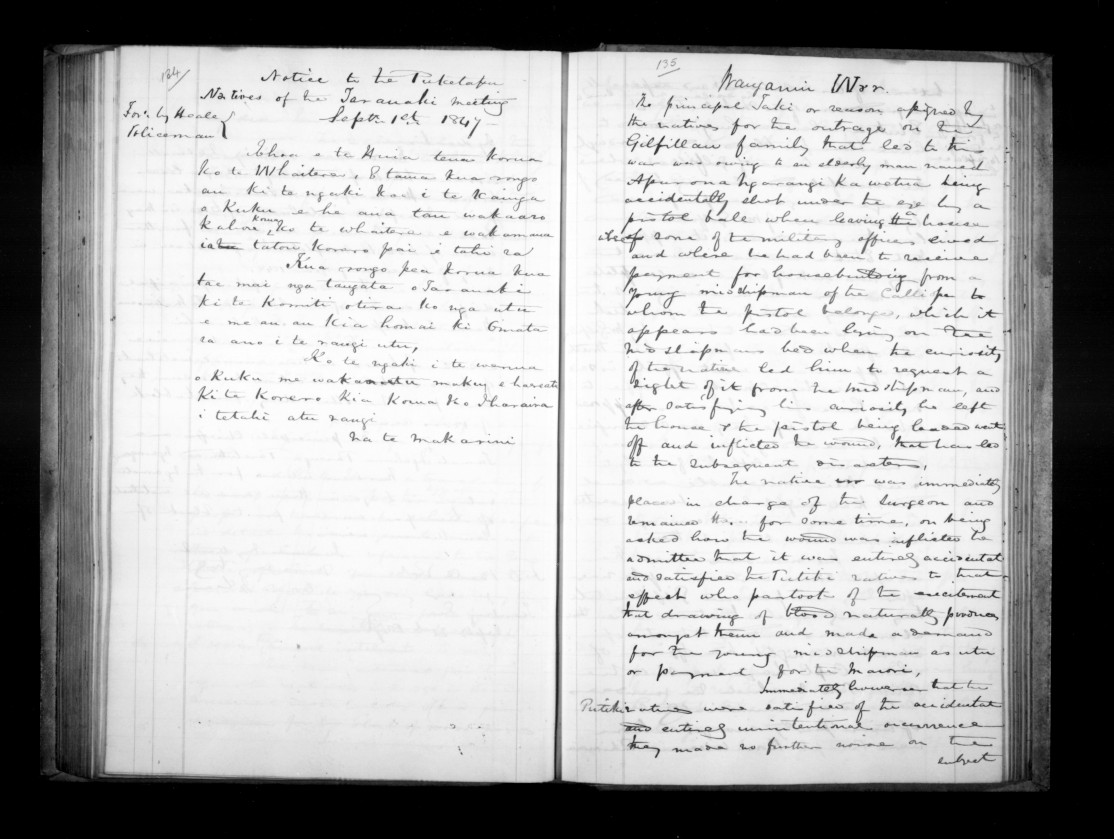 134
Notice to the Puketapu
Natives of the Taranaki meeting
Sept. 1st 1847
For. by Heale
Policeman
E hoa e te Huia tena korua
ko te Whaitere, E tama kua rongo
au ki te ngaki kai i te kainga
o Kuku e he ana tau wakaaro
korua
ko te whaitere e
tatou korero pai i tahi ra
Kua rongo pea korua kua
tae mai nga tangata o Taranaki
ki te Komiti otira ko nga utu
e mea au kia homai ki
ra ano i te rangi utu,
Ko te ngaki i te wenua
o Kuku me maku e
ki te korero kia korua ko Iharaira
i tetahi atu rangi
na te makarini
135
Wanganui War.
The principal Taki or reason assigned by
the natives for the outrage on the
Gilfillan family that led to the
war was owing to an elderly man named
Ngarangi being
accidentally shot under the eye by a
pistol ball when leaving a house
where some of the military officers lived
and where he had been to receive
payment for housebuilding from a
young midshipman of the Calliope to
whom the pistol belongs, which it
appears had been lying on the
midshipmans bed when the curiosity
of the native led him to request a
sight of it from the midshipman, and
after satisfying his curiosity he left
the house & the pistol being loaded went
off and inflicted the wound, that has led
to the subsequent disasters,
The native was immediately
placed in charge of the surgeon and
remained there for some time, on being
asked how the wound was inflicted he
admitted that it was entirely accidental
and satisfied the Putiki natives to that
effect who partook of the excitement
that drawing of blood naturally produces
amongst them and made a demand
for the young midshipman as utu
or payment for the Maori,
Immediately however that the
Putiki natives were satisfied of the accidental
and entirely unintentional occurrence
they made no further noise on the
subject